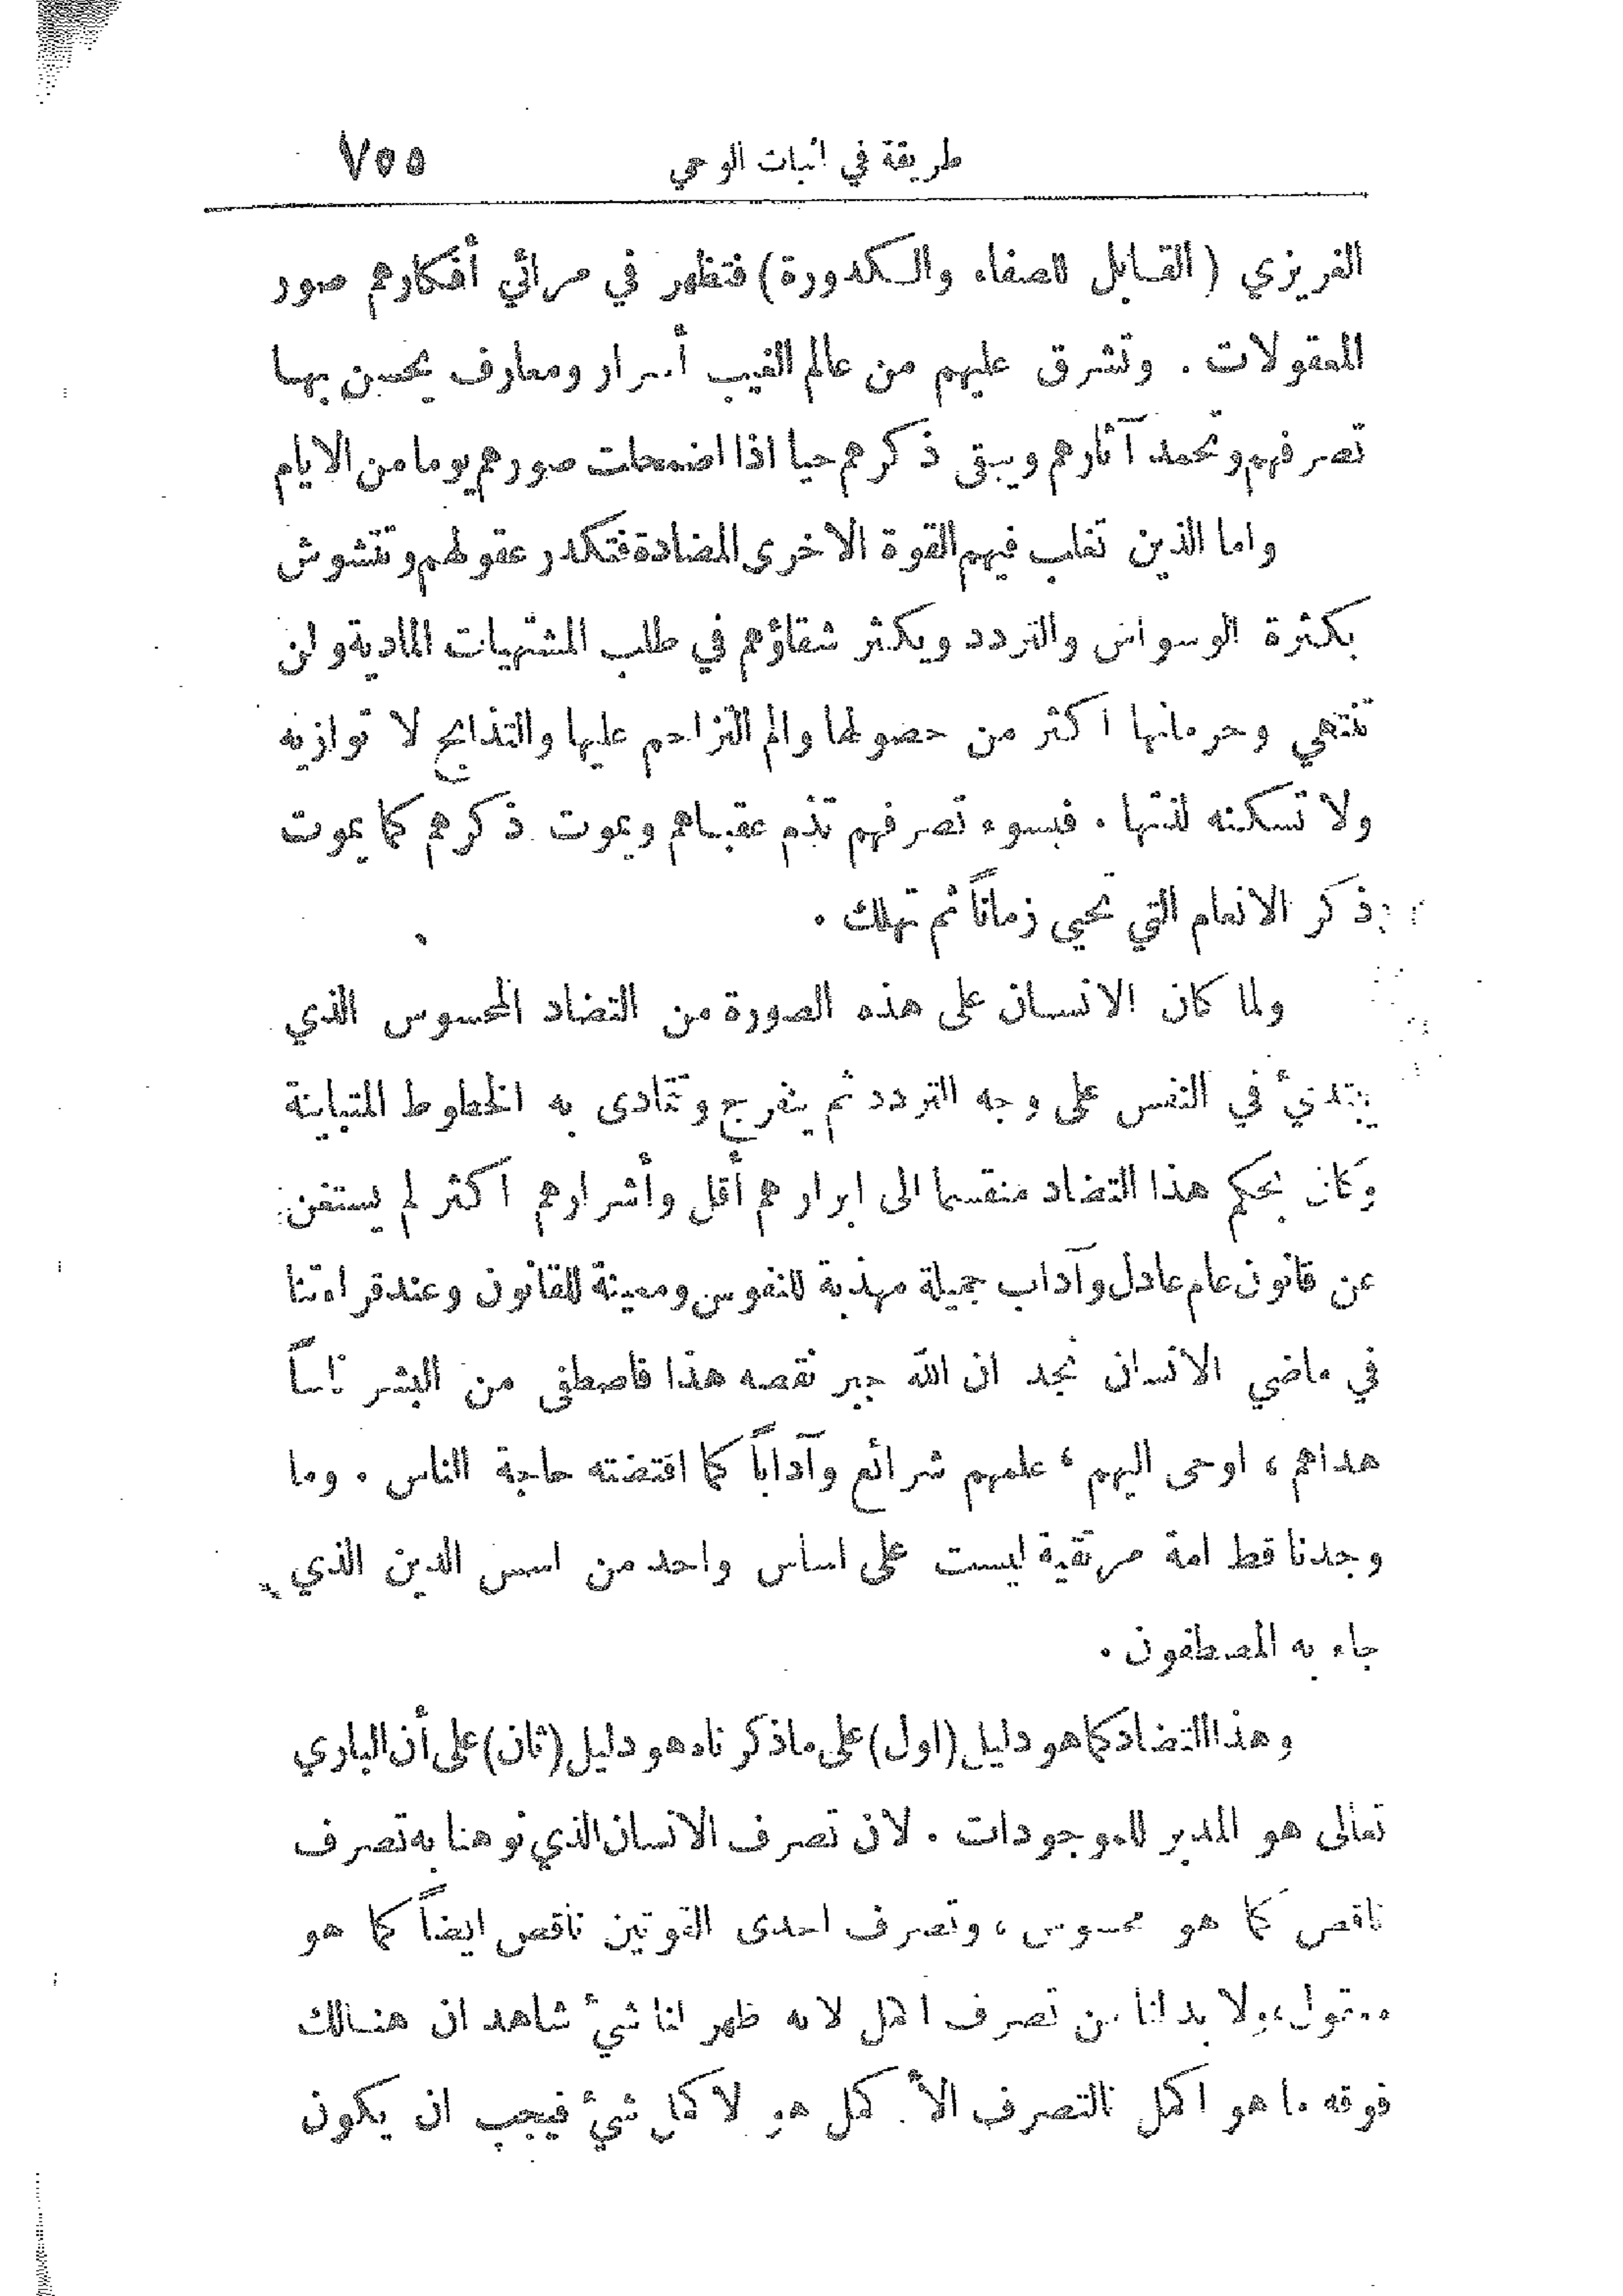 طريقة في اثبات الوحي ٧٥٥
الغريزي (القابل للصفاء والكدورة) فتظهر في مرائي أفكارهم صور
المعقولات . وتشرق عليهم من عالم الغيب أسرار ومعارف يحسن بها
تصرفهم وتحمد آثارهم ويبقى ذكرهم حيا اذا اضمحلت صورهم يوما من الايام
واما الذين تغلب فيهم القوة الاخرى المضادة فتكدر عقولهم وتتشوش
بكثرة الوسواس والتردد ويكثر شقاؤهم في طلب المشتهيات المادية ولن
تنتهي وحرمانها اكثر من حصولها والم التزاحم عليها والتذابح لا توازيه
ولا تسكنه لذتها . فبسوء تصرفهم تذم عقباهم ويموت ذكرهم كما يموت
ذكر الانعام التي تحيى زماناً ثم تهلك .
ولما كان الانسان على هذه الصورة من التضاد المحسوس الذي
يبتدئ في النفس على وجه التردد ثم ينفرج وتتمادى به الخطوط المتباينة
وكان بحكم هذا التضاد منقسما الى ابرار هم أقل وأشرار هم اكثر لم يستغن
عن قانون عام عادل وآداب جميلة مهذبة للنفوس ومعينة للقانون وعند قراءتنا
في ماضي الانسان نجد ان الله جبر نقصه هذا فاصطفى من البشر ناساً
هداهم ، اوحى اليهم ، علمهم شرائع وآداباً كما اقتضته حاجة الناس . وما
وجدنا قط امة مرتقية ليست على اساس واحد من اسس الدين الذي
جاء به المصطفون .
وهذا التضاد كما هو دليل (اول) على ما ذكرناه هو دليل (ثان) على أن الباري
تعالى هو المدبر للموجودات . لان تصرف الانسان الذي نوهنا به تصرف
ناقص كما هو محسوس ، وتصرف احدى القوتين ناقص ايضاً كما هو
معقول ، ولا بد لنا من تصرف اكمل لانه ظهر لنا شئ شاهد ان هنالك
فوقه ما هو اكمل فالتصرف الأكمل هو لاكمل شئ فيجب ان يكون